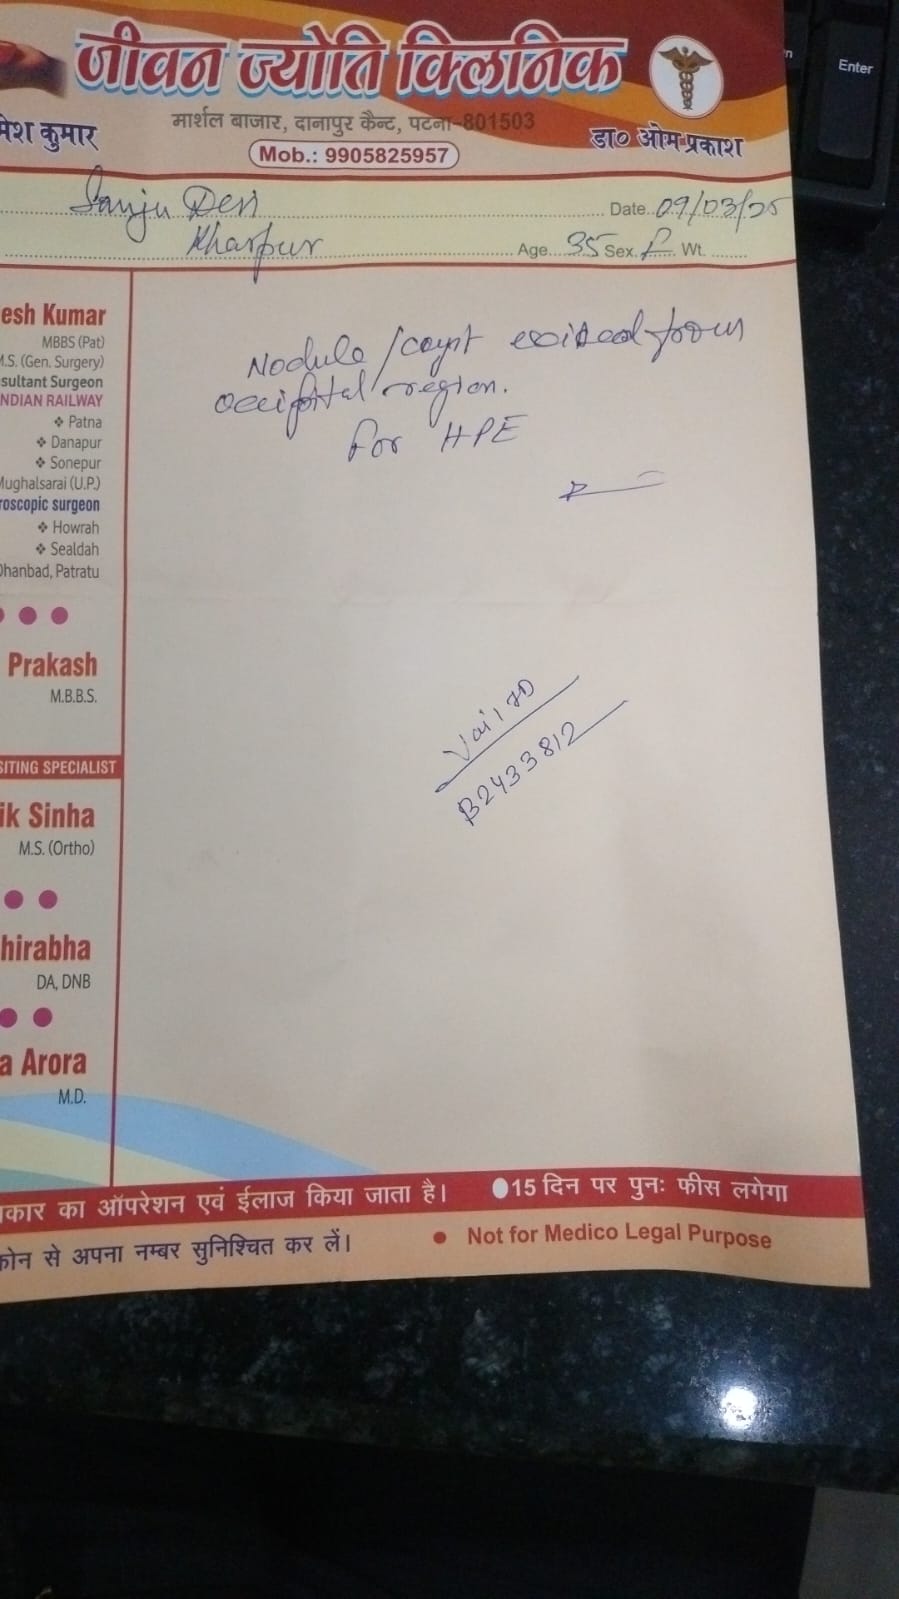 जीवन ज्योति क्लिनिक
मार्शल बाजार, दानापुर कैन्ट, पटना-801503
मेश कुमार
Mob.: 9905825957
डा० ओम प्रकाश
Sanju Devi
Date. 09/03/25
Kharpur
Age. 35 Sex. F Wt.
esh Kumar
MBBS (Pat)
M.S. (Gen. Surgery)
sultant Surgeon
NDIAN RAILWAY
❖ Patna
❖ Danapur
❖ Sonepur
Mughalsarai (U.P.)
roscopic surgeon
❖ Howrah
❖ Sealdah
Dhanbad, Patratu
Prakash
M.B.B.S.
SITING SPECIALIST
ik Sinha
M.S. (Ortho)
hirabha
DA, DNB
a Arora
M.D.
Nodule / cyst excised from
occipital region.
for HPE
B2433812
कार का ऑपरेशन एवं ईलाज किया जाता है। ●15 दिन पर पुनः फीस लगेगा
फोन से अपना नम्बर सुनिश्चित कर लें। • Not for Medico Legal Purpose
Enter